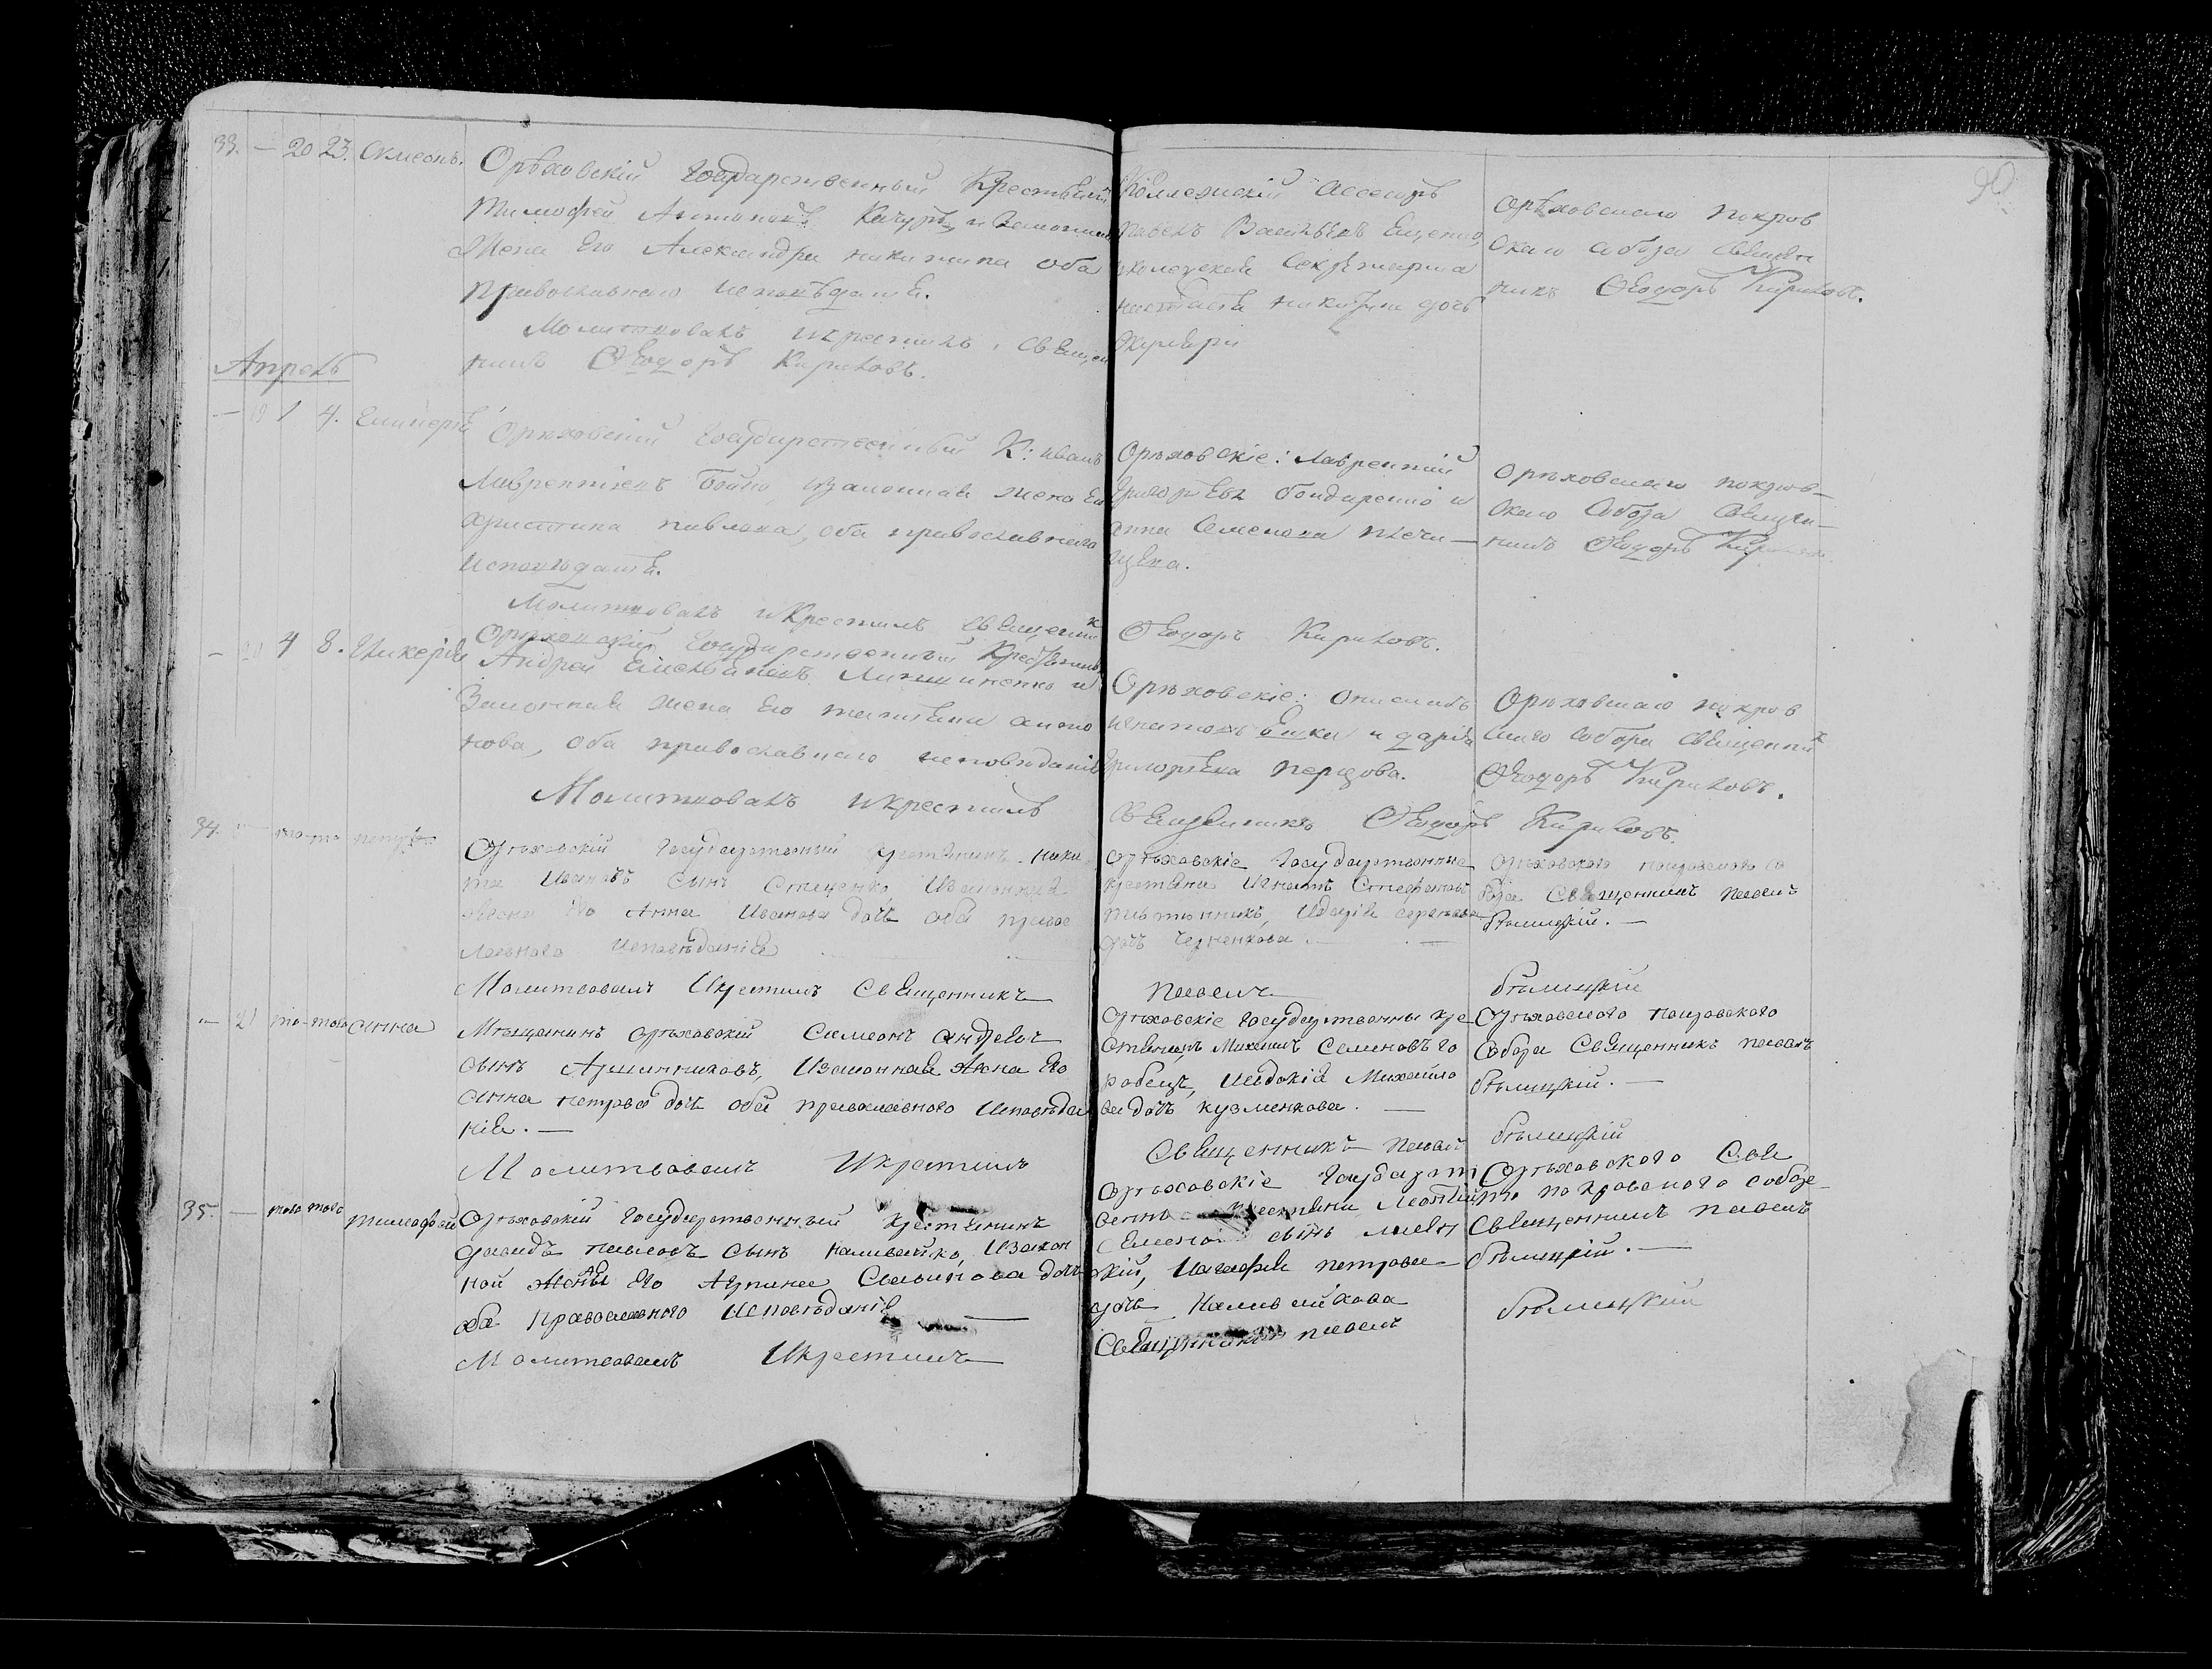 33. — 20 23. Симеонъ.
Орѣховскій Государственный Крестьянин
Тимофей Антоновъ Качуръ, и Законная
Жена Его Александра никитина оба
православнаго исповѣданія.
Молитвовалъ икрестилъ, священ
никъ Ѳеодоръ Кириловъ.
Коллежскій Ассесоръ
павелъ Васильевъ
секретарша
настасія никитина дочь
Орѣховскаго покров
скаго собора священ
никъ Ѳеодоръ Кириловъ.
Апрель
— 19 1 4.
Орѣховскій Государственный К: иванъ
Лаврентіевъ Бойко изаконная жена Ег
христина павлова, оба православнаго
исповѣданія.
Молитвовалъ икрестилъ священник
Орѣховскіе: Лаврентий
григорьевъ бондаренко и
анна семенова
Ѳеодоръ Кириловъ.
Орѣховскаго покров-
скаго Собора Священ-
никъ Ѳеодоръ Кириловъ
— 20 4 8. Гликерія
Орѣховскій Государственный Крестьянинъ
Андрей Емельяновъ и
Законная жена Его татіяна
нова, оба православнаго исповѣданія
Молитвовалъ икрестилъ
Орѣховскіе:
игнатовъ и дарія
григорьева перцова.
Священникъ Ѳеодоръ Кириловъ.
Орѣховскаго покров
скаго собора священник
Ѳеодоръ Кириловъ.
34. — того-то петръ
Орѣховскій Государственный крестьянинъ ники
та Ивановъ сынъ Стеценко Изаконная
жена его Анна Иванова дочь оба право
славного исповѣданія
Молитвовалъ Икрестилъ Священникъ
Орѣховскіе Государственные
крестьяни Игнатъ Стефановъ
Идарія
дочь Черненкова. —
павелъ
Орѣховского покровского со
бора Священникъ павелъ
бѣлицкій. —
бѣлицкій
— 21 то-того анна
Мѣщанинъ орѣховскій Симеонъ андреевъ
сынъ Аршинниковъ, Изаконная Жена Его
анна петрова дочь оба православного Исповѣда
нія. —
Молитвовалъ Икрестилъ
Орѣховскіе Государственны кре
стьянинъ Михаилъ Семеновъ го
робецъ, Иевдокія Михайло
ва дочь кузменкова. —
Священникъ павелъ
Орѣховского покровского
собора Священникъ павелъ
бѣлицкій. —
бѣлицкій
35. — того того тимофей
Орѣховскій Государственный крестьянинъ
давидъ павловъ сынъ наливайко, Изакон
ной Жены Его Агрипина Савинова дочь
оба православного Исповѣданія —
Молитвовалъ Икрестилъ
Орѣховскіе Государст
венны крестьяни Леонтий
Семено сынъ
кій, Иагафія петрова
дочь Наливайкова
Священникъ павелъ
Орѣховского Свя
то покровского собора
Священникъ павелъ
бѣлицкій. —
бѣлицкій